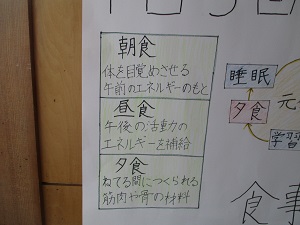 朝食
体を目覚めさせる
午前のエネルギーのもと
昼食
午後の活動の
エネルギーを補給
夕食
ねてる間につくられる
筋肉や骨の材料
睡眠
夕食
元
学習
食事